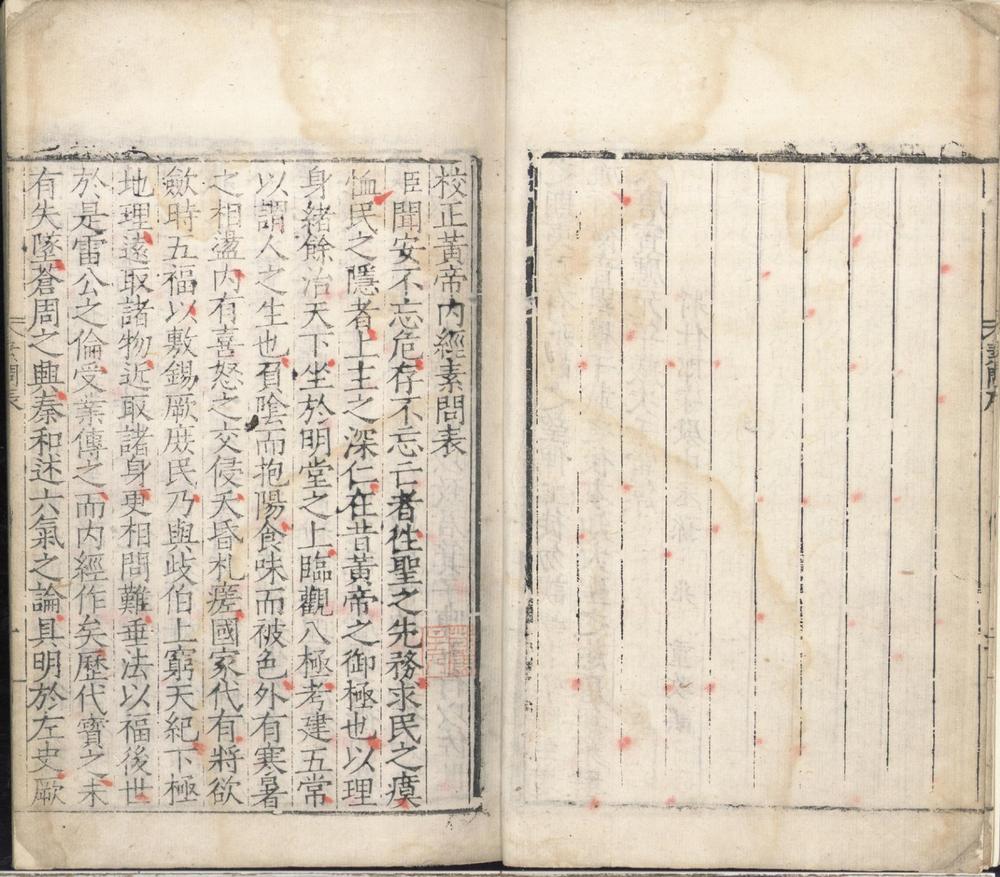 校正黃帝內經素問表
臣聞安不忘危存不忘亡者往聖之先務求民之瘼
恤民之隱者上主之深仁在昔黃帝之御極也以理
身緒餘治天下坐於明堂之上臨觀八極考建五常
以謂人之生也負陰而抱陽食味而被色外有寒暑
之相盪內有喜怒之交侵夭昏札瘥國家代有將欲
斂時五福以敷錫厥庶民乃與歧伯上窮天紀下極
地理遠取諸物近取諸身更相問難垂法以福後世
於是雷公之倫受業傳之而內經作矣歷代寶之未
有失墜蒼周之興秦和述六氣之論具明於左史厥